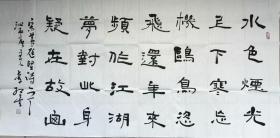 水色煙光
上下寒忘
機鷗鳥恣
飛還年來
頻作江湖
夢對此身
疑在故山